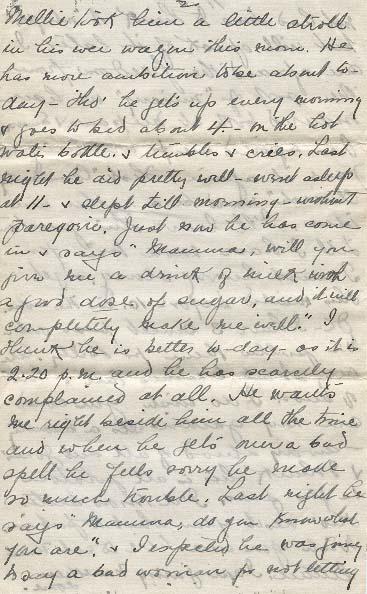 2
Mellie took him a little stroll
in his wee wagon this morn. He
has more ambition to be about to-
day - tho' he gets up every morning
& goes to bed about 4 - on the hot
water bottle & tumbles & cries. Last
night he did pretty well - went asleep
at 11 - & slept till morning - without
paregoric. Just now he has come
in & says "Mamma, will you
give me a drink of milk with
a good dose of sugar, and it will
completely make me well." I
think he is better to-day - as it is
2.20 p.m and he has scarcely
complained at all. He wants
me right beside him all the time
and when he gets over a bad
spell he feels sorry he made
so much trouble. Last night he
says "Mamma, do you know what
you are". & I expected he was going
to say a bad woman for not letting